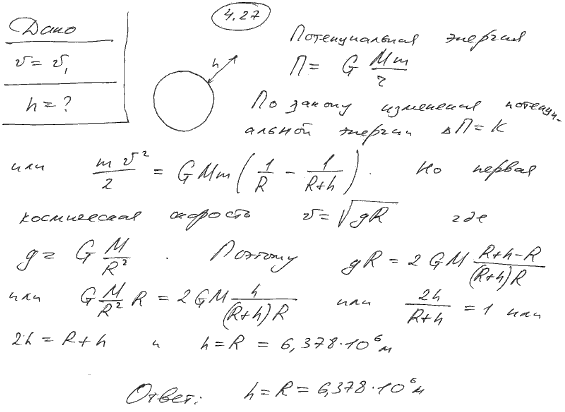 4.27
Дано
v = v₁
h = ?
h
Потенциальная энергия
П = G Mm/r
По закону изменения потенци-
альной энергии ΔП = K
или mv²/2 = GMm(1/R - 1/(R+h)). Но первая
космическая скорость v = √gR где
g = G M/R². Поэтому gR = 2GM (R+h-R)/((R+h)R)
или G M/R² R = 2GM h/((R+h)R) или 2h/(R+h) = 1 или
2h = R + h и h = R = 6,378·10⁶ м
Ответ: h = R = 6,378·10⁶ м